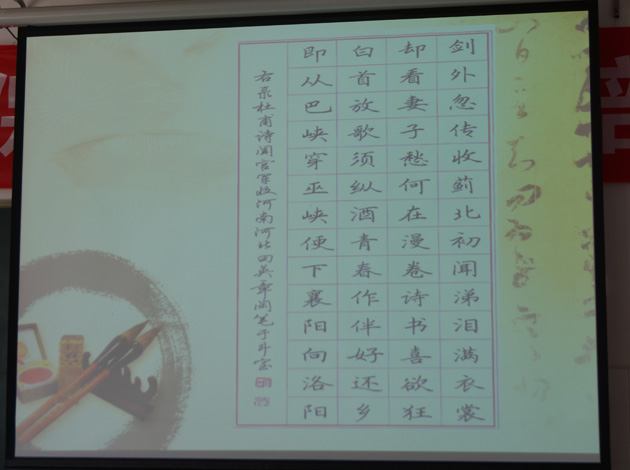 剑外忽传收蓟北初闻涕泪满衣裳
却看妻子愁何在漫卷诗书喜欲狂
白首放歌须纵酒青春作伴好还乡
即从巴峡穿巫峡便下襄阳向洛阳
右录杜甫诗闻官军收河南河北田英章笔于斗室